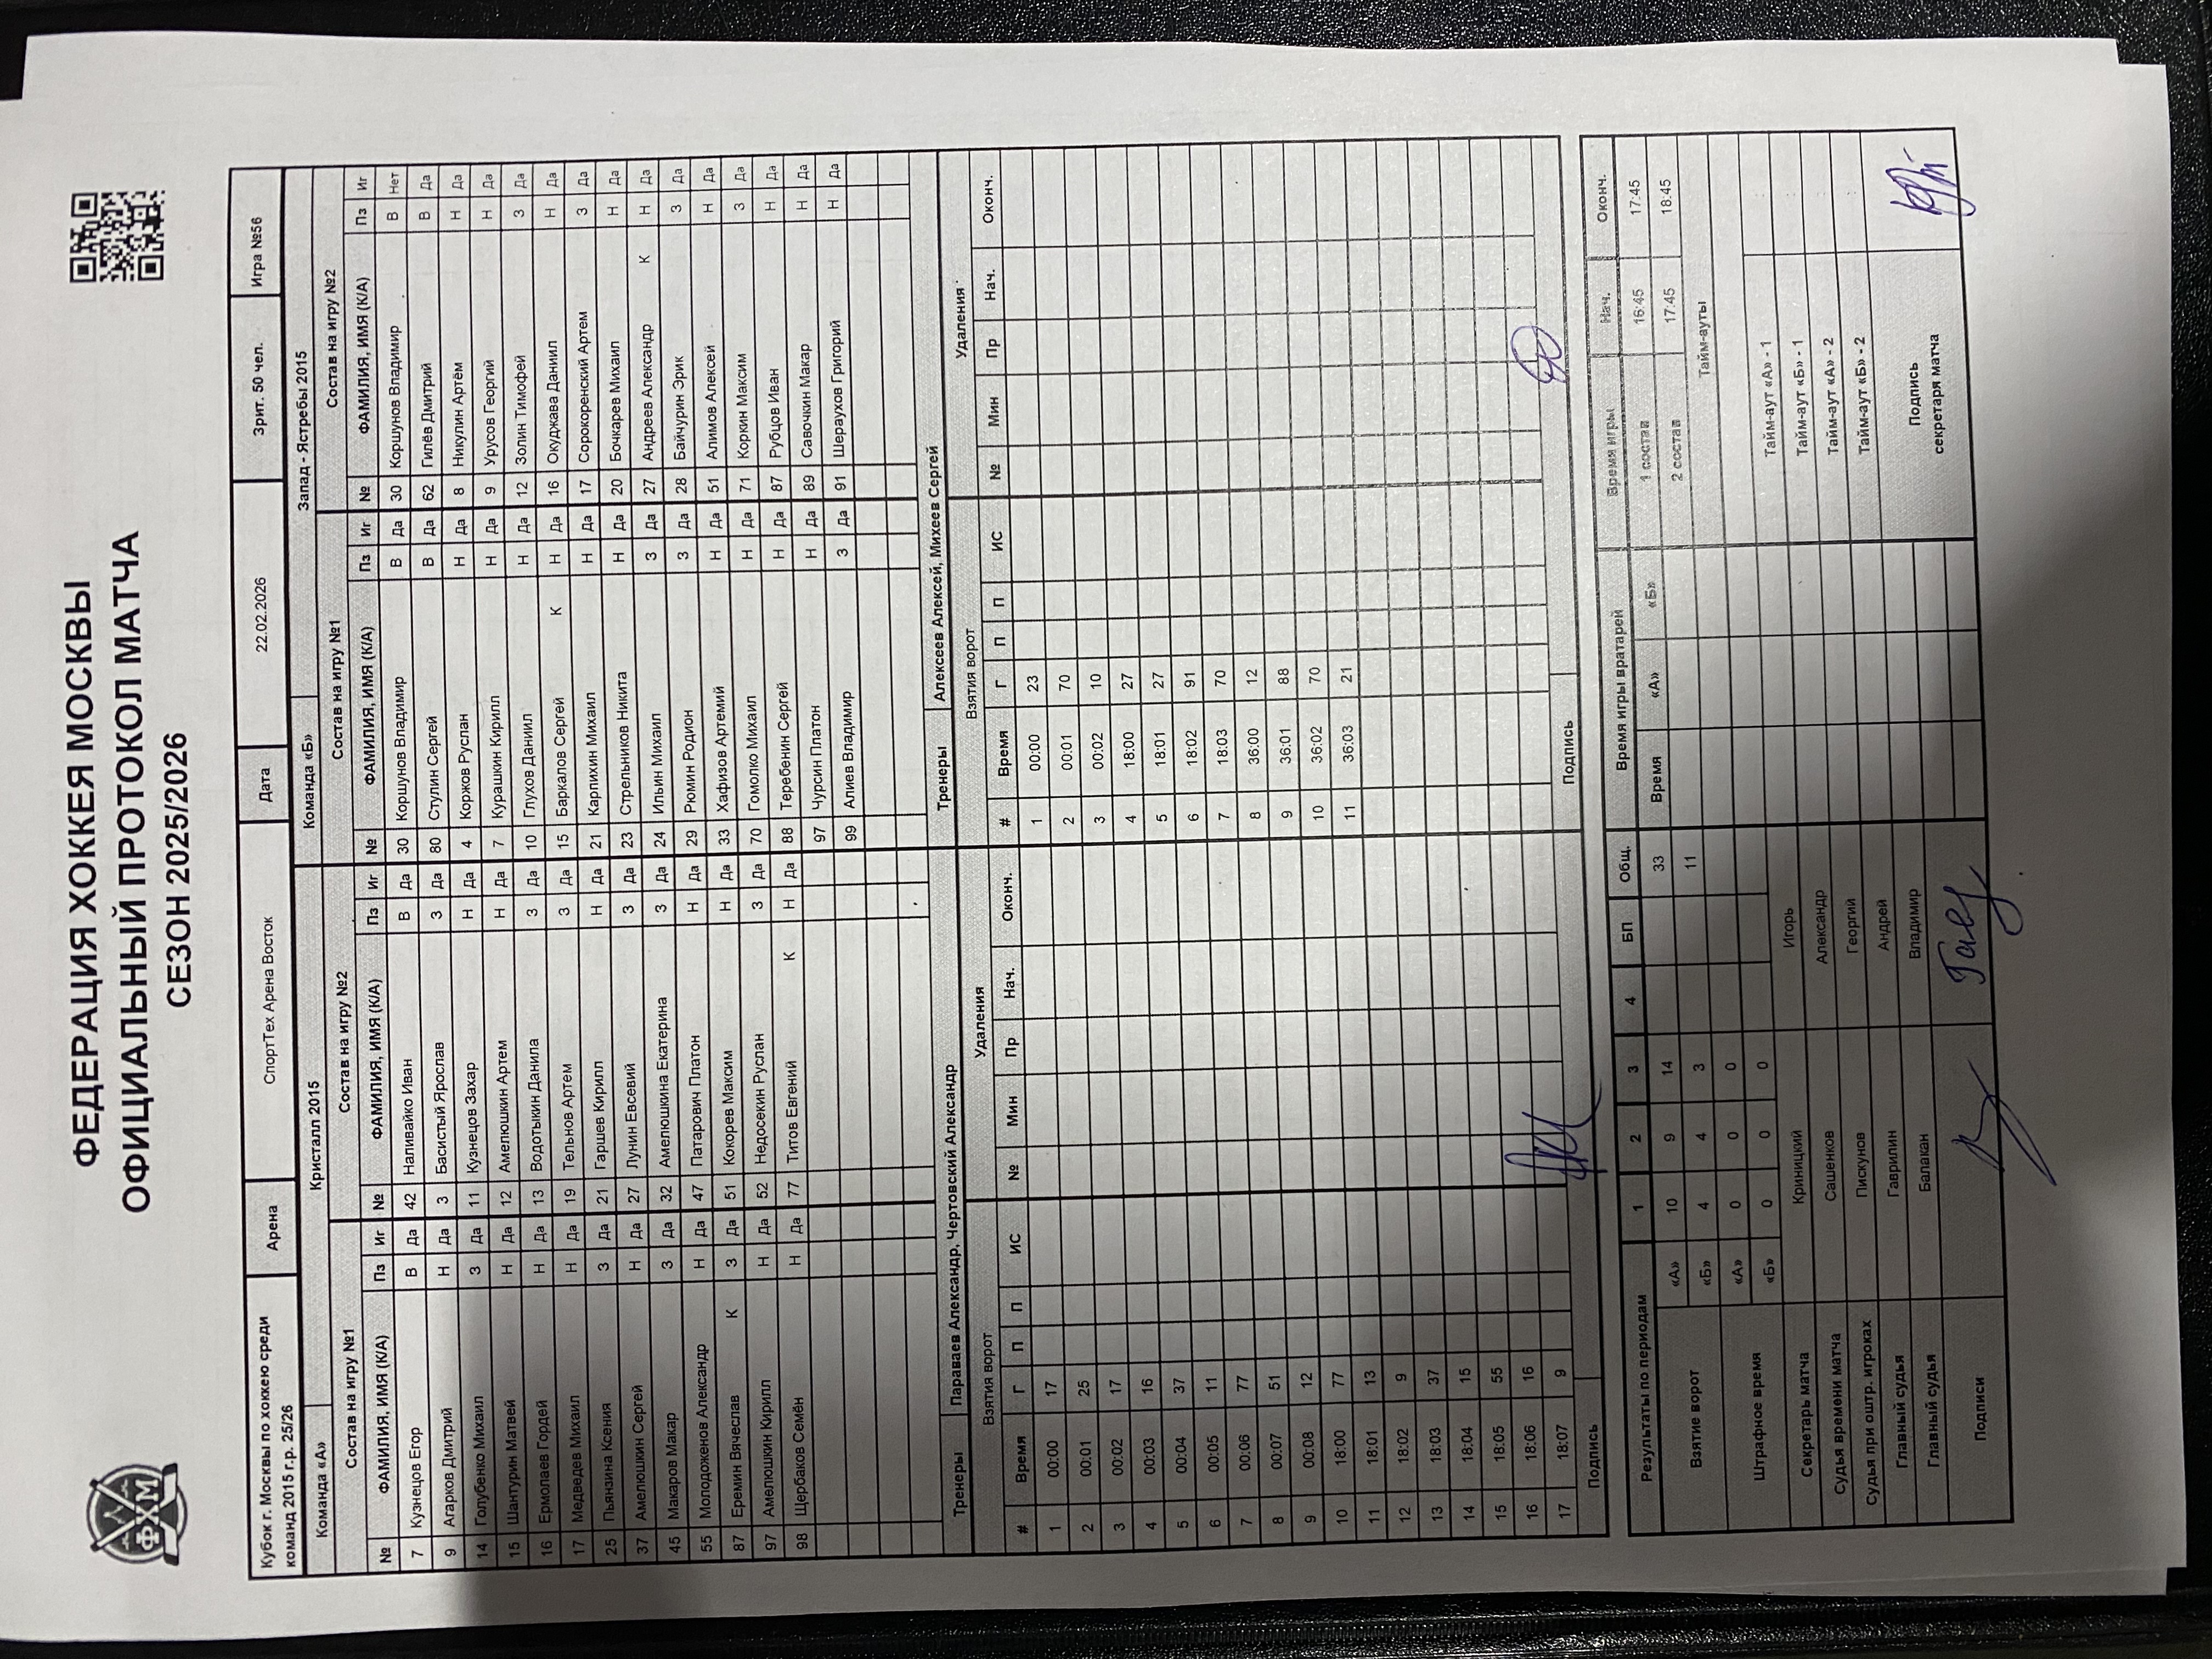 ФЕДЕРАЦИЯ ХОККЕЯ МОСКВЫ
ОФИЦИАЛЬНЫЙ ПРОТОКОЛ МАТЧА
СЕЗОН 2025/2026
ФХМ
Кубок г. Москвы по хоккею среди команд 2015 г.р. 25/26 Арена СпортТех Арена Восток Дата 22.02.2026 Зрит. 50 чел. Игра №56
Команда «А» Кристалл 2015 Команда «Б» Запад - Ястребы 2015
Состав на игру №1 Состав на игру №2 Состав на игру №1 Состав на игру №2
№ ФАМИЛИЯ, ИМЯ (К/А) Пз Иг № ФАМИЛИЯ, ИМЯ (К/А) Пз Иг № ФАМИЛИЯ, ИМЯ (К/А) Пз Иг № ФАМИЛИЯ, ИМЯ (К/А) Пз Иг
7 Кузнецов Егор В Да 42 Наливайко Иван В Да 30 Коршунов Владимир В Да 30 Коршунов Владимир В Нет
9 Агарков Дмитрий Н Да 3 Басистый Ярослав З Да 80 Ступин Сергей В Да 62 Гилёв Дмитрий В Да
14 Голубенко Михаил З Да 11 Кузнецов Захар Н Да 4 Коржов Руслан Н Да 8 Никулин Артём Н Да
15 Шантурин Матвей Н Да 12 Амелюшкин Артем Н Да 7 Курашкин Кирилл Н Да 9 Урусов Георгий Н Да
16 Ермолаев Гордей Н Да 13 Водотыкин Данила З Да 10 Глухов Даниил Н Да 12 Золин Тимофей З Да
17 Медведев Михаил Н Да 19 Тельнов Артем З Да 15 Баркалов Сергей К Н Да 16 Окуджава Даниил Н Да
25 Пьянзина Ксения З Да 21 Гаршев Кирилл Н Да 21 Карпихин Михаил Н Да 17 Сорокоренский Артем З Да
37 Амелюшкин Сергей Н Да 27 Лунин Евсевий З Да 23 Стрельников Никита Н Да 20 Бочкарев Михаил Н Да
45 Макаров Макар З Да 32 Амелюшкина Екатерина З Да 24 Ильин Михаил З Да 27 Андреев Александр К Н Да
55 Молодоженов Александр Н Да 47 Патарович Платон Н Да 29 Рюмин Родион З Да 28 Байчурин Эрик З Да
87 Еремин Вячеслав К З Да 51 Кокорев Максим Н Да 33 Хафизов Артемий Н Да 51 Алимов Алексей Н Да
97 Амелюшкин Кирилл Н Да 52 Недосекин Руслан З Да 70 Гомолко Михаил Н Да 71 Коркин Максим З Да
98 Щербаков Семён Н Да 77 Титов Евгений К Н Да 88 Теребенин Сергей Н Да 87 Рубцов Иван Н Да
97 Чурсин Платон Н Да 89 Савочкин Макар Н Да
99 Алиев Владимир З Да 91 Шераухов Григорий Н Да
Тренеры Параваев Александр, Чертовский Александр Тренеры Алексеев Алексей, Михеев Сергей
Взятия ворот Удаления Взятия ворот Удаления
# Время Г П П ИС № Мин Пр Нач. Оконч. # Время Г П П ИС № Мин Пр Нач. Оконч.
1 00:00 17 1 00:00 23
2 00:01 25 2 00:01 70
3 00:02 17 3 00:02 10
4 00:03 16 4 18:00 27
5 00:04 37 5 18:01 27
6 00:05 11 6 18:02 91
7 00:06 77 7 18:03 70
8 00:07 51 8 36:00 12
9 00:08 12 9 36:01 88
10 18:00 77 10 36:02 70
11 18:01 13 11 36:03 21
12 18:02 9
13 18:03 37
14 18:04 15
15 18:05 55
16 18:06 16
17 18:07 9
Подпись Подпись
Результаты по периодам 1 2 3 4 БП Общ. Время игры вратарей Время игры Нач. Оконч.
Взятие ворот «А» 10 9 14 33 Время «А» «Б» 1 состав 16:45 17:45
«Б» 4 4 3 11 2 состав 17:45 18:45
Штрафное время «А» 0 0 0 Тайм-ауты
«Б» 0 0 0
Секретарь матча Криницкий Игорь Тайм-аут «А» - 1
Судья времени матча Сашенков Александр Тайм-аут «Б» - 1
Судья при оштр. игроках Пискунов Георгий Тайм-аут «А» - 2
Главный судья Гаврилин Андрей Тайм-аут «Б» - 2
Главный судья Балакан Владимир
Подписи Подпись секретаря матча